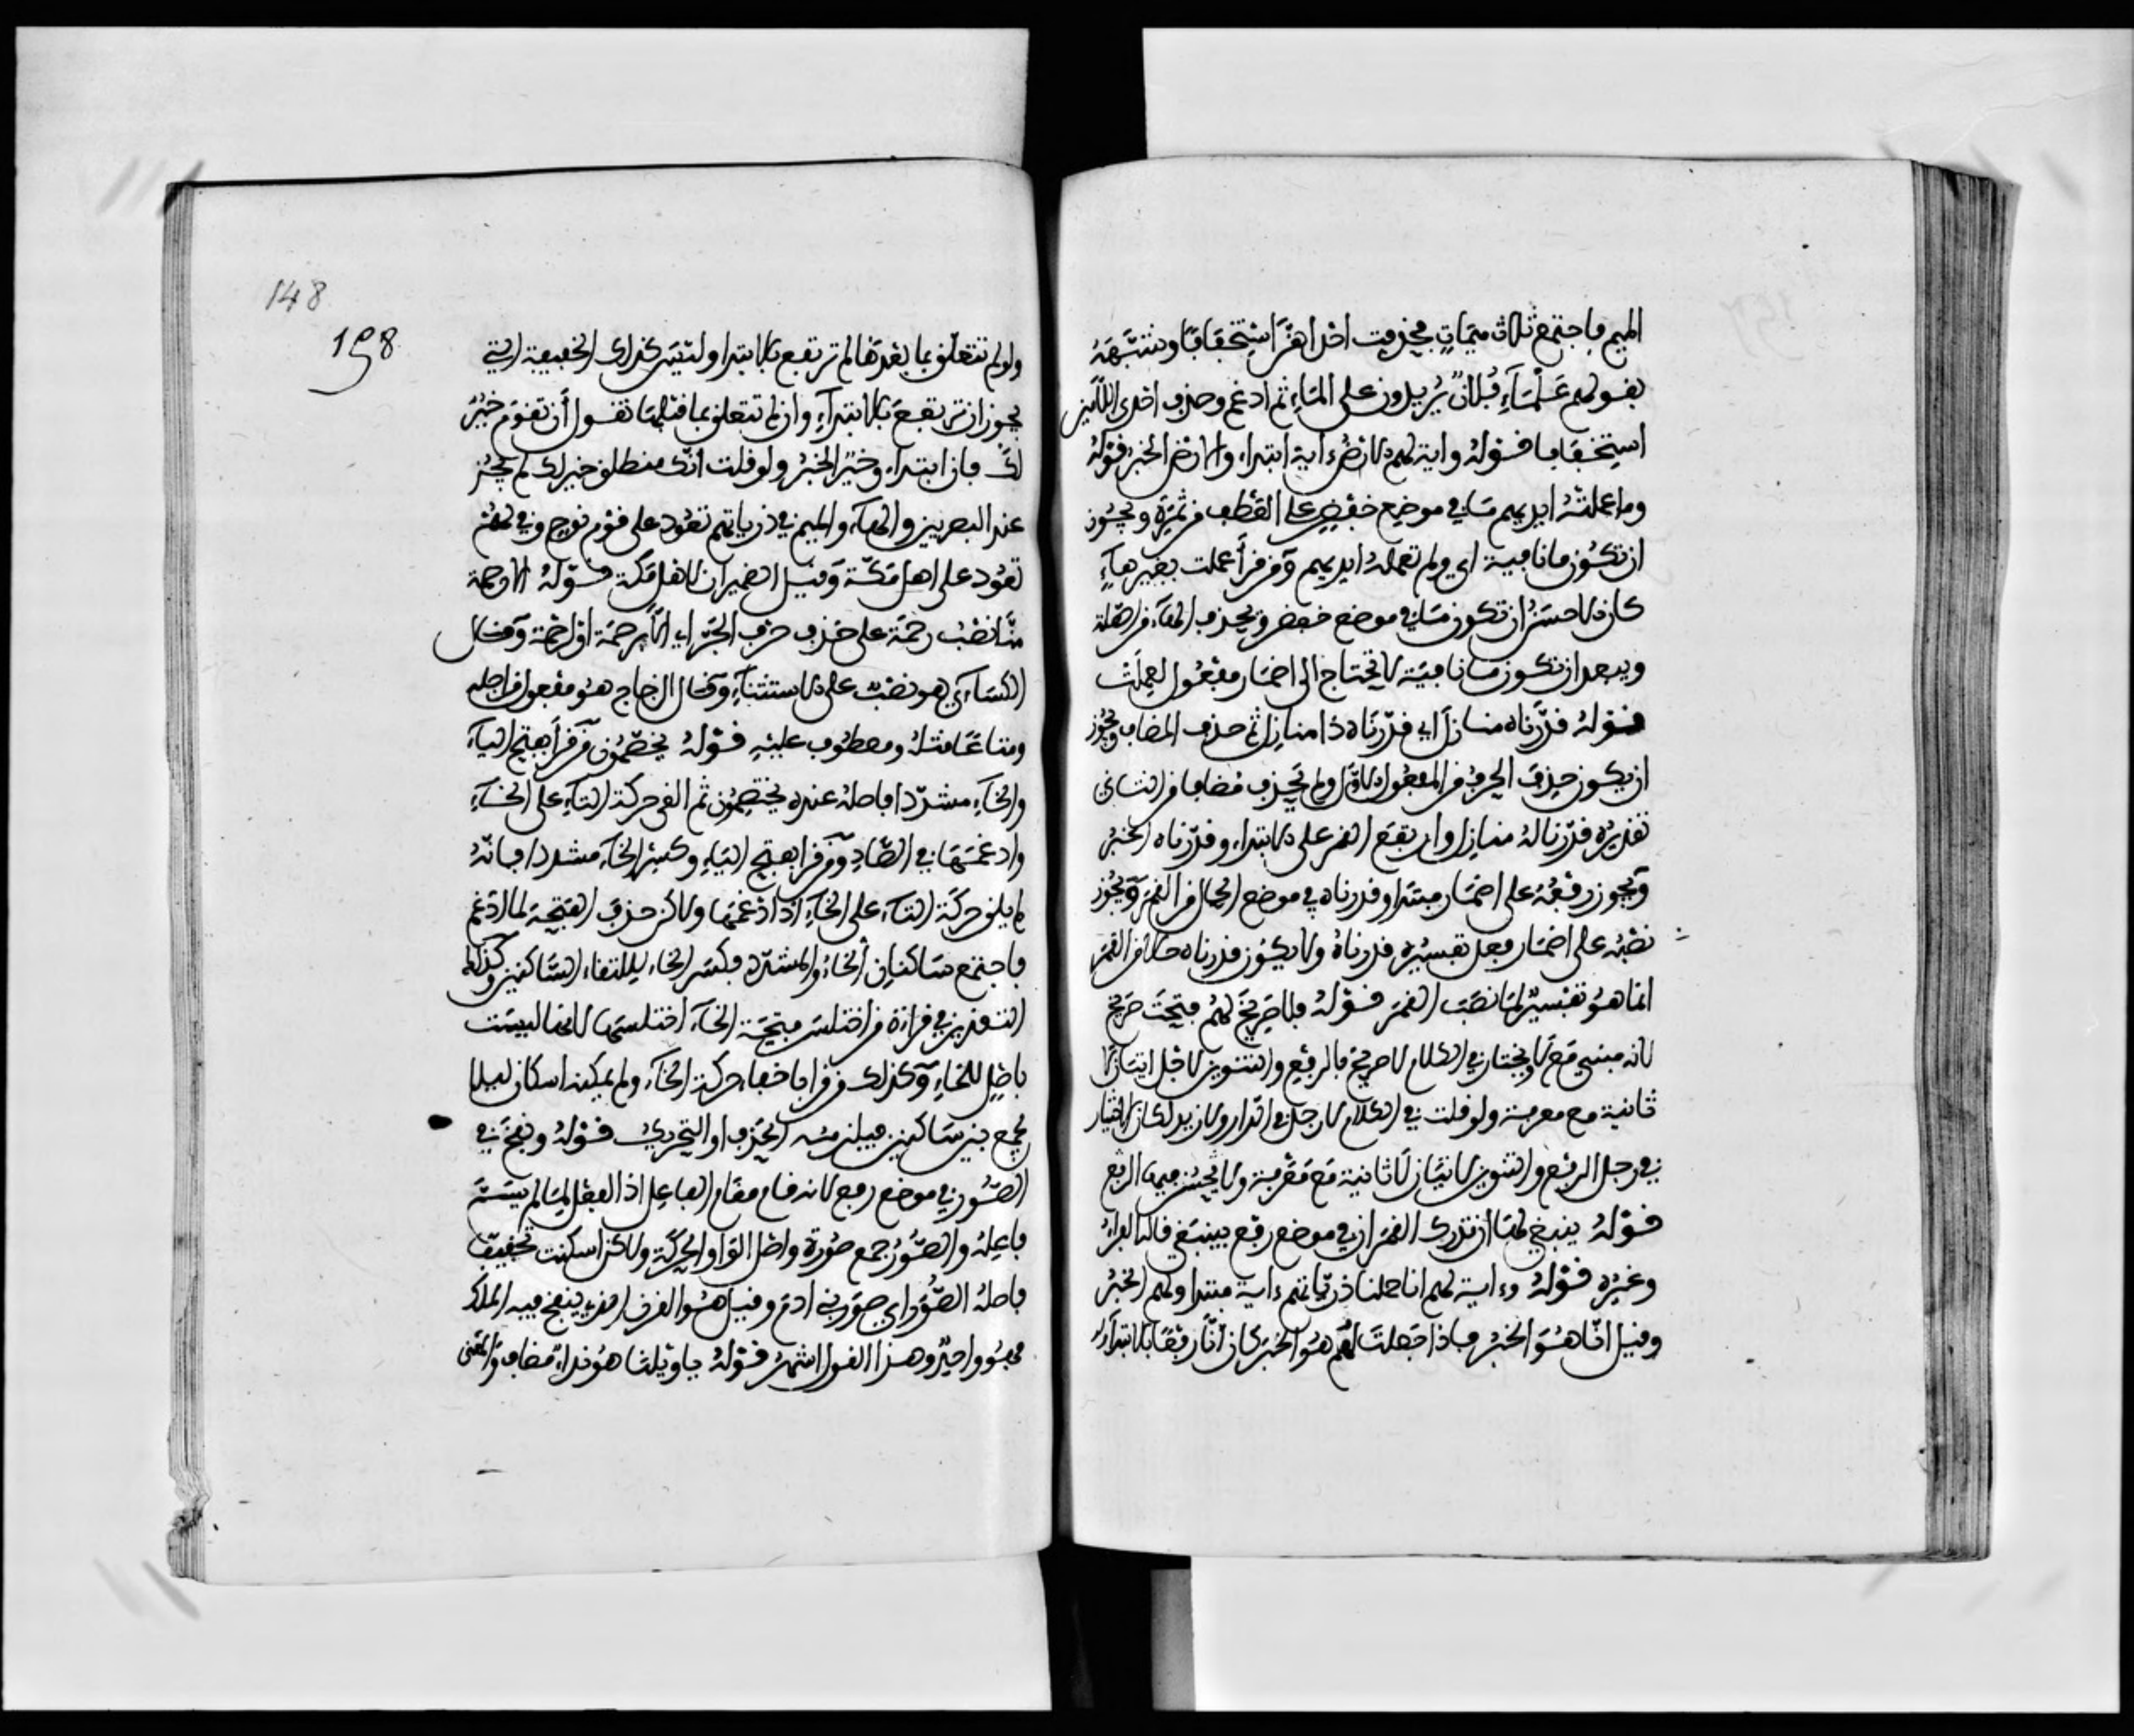 الميم فاجتمع ثلاث ميمات فحذفت احداهن استخفافا وشبهه
بقولهم عَلْمَاءِ فُلانٌ يريدون على الماء ثم ادغم وحذف احدى اللامين
استخفافا قوله واية لهم الارض اية ابتداء والارض الخبر قوله
وما عملته ايديهم ما في موضع خفض على العطف من ثمره ويجوز
ان تكون ما نافية اي ولم تعمله ايديهم ومن قرأ عملت بغير هاء
كان الاحسن ان تكون ما في موضع خفض وتحذف الهاء من الصلة
ويبعد ان تكون ما نافية لانك تحتاج الى اضمار مفعول لعملت
قوله قدرناه منازل اي قدرناه ذا منازل ثم حذف المضاف ويجوز
ان يكون حذف الحرف من المفعول الاول ولم يحذف مضافا من الثاني
تقديره قدرنا له منازل وارتفع القمر على الابتداء وقدرناه الخبر
ويجوز رفعه على اضمار مبتدا وقدرناه في موضع الحال من القمر ويجوز
نصبه على اضمار فعل تفسيره قدرناه ولا يكون قدرناه حالا من القمر
انما هو تفسير لما نصب القمر قوله فلا صريخ لهم فتحت صريخ
لانه مبني مع لا ويختار في الكلام لا صريخ بالرفع والتنوين لاجل اتيان لا
ثانية مع معرفة ولو قلت في الكلام لا رجل في الدار ولا زيد لكان الاختيار
في رجل الرفع والتنوين لاتيان لا ثانية مع معرفة ولا يحسن فيها الرفع
قوله ينبغي لها ان تدرك القمر ان في موضع رفع بينبغي قاله الفراء
وغيره قوله وءاية لهم انا حملنا ذرياتهم ءاية مبتدا ولهم الخبر
وقيل انا هو الخبر فاذا جعلت لهم هو الخبر كان انا رفعا بالابتداء
148
148
ولو لم تتعلق بما بعدها لم ترتفع بالابتدا وليس كذلك الخفيفة التي
يجوز ان ترتفع بالابتداء وان لم تتعلق بما قبلها تقول أن تقوم خير
لك فان ابتداء وخير الخبر ولو قلت انك منطلق خير لك لم يجز
عند البصريين والهاء والميم في ذرياتهم تعود على قوم نوح وفي لهم
تعود على اهل مكة وقيل الضميران لاهل مكة قوله الا رحمة
منا نصب رحمة على حذف حرف الجر اي الا برحمة او لرحمة وقال
الكساءي هو نصب على الاستثناء وقال الزجاج هو مفعول من اجله
ومتاعا مثله ومعطوف عليه قوله يخصمون من قرأ بفتح الياء
والخاء مشددا فاصله عنده يختصمون ثم القى حركة التاء على الخاء
وادغمها في الصاد ومن قرا بفتح الياء وكسر الخاء مشددا فانه
لم يلق حركة التاء على الخاء اذا ادغمها ولاكن حذف الفتحة لما ادغم
فاجتمع ساكنان الخاء والمشدد فكسر الخاء لالتقاء الساكنين وكذلك
التقدير في قراءة من اختلس فتحة الخاء اختلسها لانها ليست
باصل للخاء وكذلك من قرا باخفاء حركة الخاء ولم يمكنه اسكان ليلا
يجمع بين ساكنين فيلزمه الحذف او التحريك قوله ونفخ في
الصور في موضع رفع لانه قام مقام الفاعل اذ الفعل لما لم يسم
فاعله والصور جمع صورة واصل الواو الحركة ولاكن اسكنت تخفيفا
فاصله الصور اي صور بني ادم وقيل هو القرن الذي ينفخ فيه الملك
فهو واحد وهذا القول اشهر قوله يا ويلنا هو نداء مضاف والمعنى